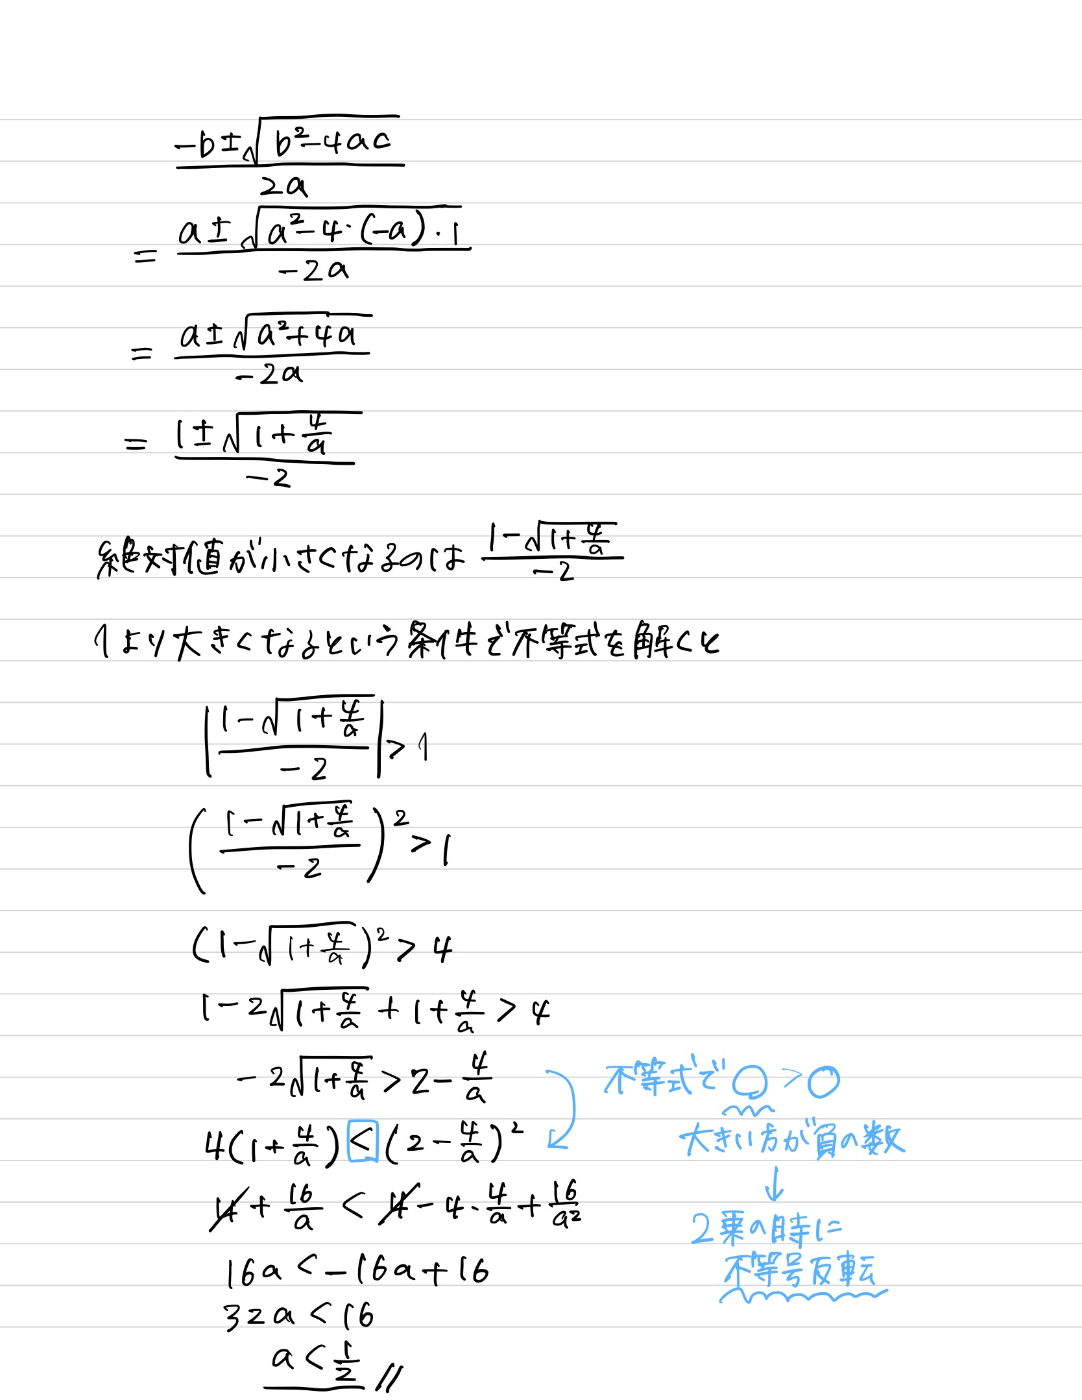 (-b±√(b²-4ac))/(2a)
= (a±√(a²-4·(-a)·1))/(-2a)
= (a±√(a²+4a))/(-2a)
= (1±√(1+4/a))/(-2)
絶対値が小さくなるのは (1-√(1+4/a))/(-2)
1より大きくなるという条件で不等式を解くと
|(1-√(1+4/a))/(-2)| > 1
((1-√(1+4/a))/(-2))² > 1
(1-√(1+4/a))² > 4
1-2√(1+4/a) + 1+4/a > 4
-2√(1+4/a) > 2-4/a
4(1+4/a) < (2-4/a)²
4+16/a < 4-4·4/a+16/a²
16a < -16a+16
32a < 16
a < 1/2 //
不等式で○>○
大きい方が負の数
↓
2乗の時に
不等号反転